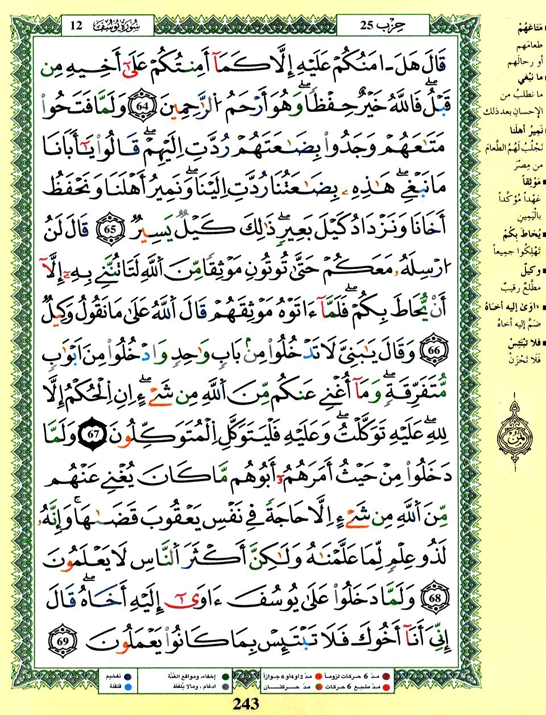 سُورَةُ يُوسُفَ 12
حِزْب 25
قَالَ هَلَ ـ امَنُكُمْ عَلَيْهِ إِلَّا كَمَآ أَمِنتُكُمْ عَلَىٰٓ أَخِيهِ مِن
قَبْلُ فَاللَّهُ خَيْرٌ حِفْظًا وَهُوَ أَرْحَمُ الرَّٰحِمِينَ 64 وَلَمَّا فَتَحُوا
مَتَٰعَهُمْ وَجَدُوا بِضَٰعَتَهُمْ رُدَّتِ إِلَيْهِمْ قَالُوا يَٰٓأَبَانَا
مَا نَبْغِي هَٰذِهِ بِضَٰعَتُنَا رُدَّتِ إِلَيْنَا وَنَمِيرُ أَهْلَنَا وَنَحْفَظُ
أَخَانَا وَنَزْدَادُ كَيْلَ بَعِيرٍ ذَٰلِكَ كَيْلٌ يَسِيرٌ 65 قَالَ لَنُ
ارْسِلَهُ مَعَكُمْ حَتَّىٰ تُوتُونِ مَوْثِقًا مِّنَ اللَّهِ لَتَاتُنَّنِي بِهِ إِلَّآ
أَنْ يُّحَاطَ بِكُمْ فَلَمَّآ ءَاتَوْهُ مَوْثِقَهُمْ قَالَ اللَّهُ عَلَىٰ مَا نَقُولُ وَكِيلٌ
66 وَقَالَ يَٰبَنِيَّ لَا تَدْخُلُوا مِنۢ بَابٍ وَٰحِدٍ وَادْخُلُوا مِنَ ابْوَٰبٍ
مُّتَفَرِّقَةٍ وَمَآ أُغْنِي عَنكُم مِّنَ اللَّهِ مِن شَيْءٍ اِنِ الْحُكْمُ إِلَّا
لِلهِ عَلَيْهِ تَوَكَّلْتُ وَعَلَيْهِ فَلْيَتَوَكَّلِ الْمُتَوَكِّلُونَ 67 وَلَمَّا
دَخَلُوا مِنْ حَيْثُ أَمَرَهُمُۥٓ أَبُوهُم مَّا كَانَ يُغْنِي عَنْهُم
مِّنَ اللَّهِ مِن شَيْءٍ اِلَّا حَاجَةً فِي نَفْسِ يَعْقُوبَ قَضَىٰهَا وَإِنَّهُ
لَذُو عِلْمٍ لِّمَا عَلَّمْنَٰهُ وَلَٰكِنَّ أَكْثَرَ النَّاسِ لَا يَعْلَمُونَ
68 وَلَمَّا دَخَلُوا عَلَىٰ يُوسُفَ ءَاوَىٰٓ إِلَيْهِ أَخَاهُ قَالَ
إِنِّيَ أَنَآ أَخُوكَ فَلَا تَبْتَئِسْ بِمَا كَانُوا يَعْمَلُونَ 69
مَتَاعَهُمْ
طعامهم
أو رحالهم
ما نَبْغي
ما نطلبُ من
الإحسان بعد ذلك
نَمِيرُ أهلَنا
نَجْلُبُ لَهُمُ الطَّعامَ
من مِصْرَ
مَوْثِقاً
عَهْداً مُؤكَّداً
بالْيَمِينِ
يُحَاطَ بِكُمْ
تَهْلِكُوا جميعاً
وَكِيلٌ
مطَّلعٌ رقيبٌ
ءَاوَىٰ إليه أخاهُ
ضَمَّ إليه أخاه
فلا تَبْتَئِسْ
فَلَا تَحْزَنْ
مدّ 6 حركات لزوماً
مدّ 2 أو 4 أو 6 جوازاً
إخفاء، ومواقع الغُنَّة
تفخيم
مدّ مشبع 6 حركات
مدّ حركتان
ادغام، وما لا يُلفَظ
قلقلة
243